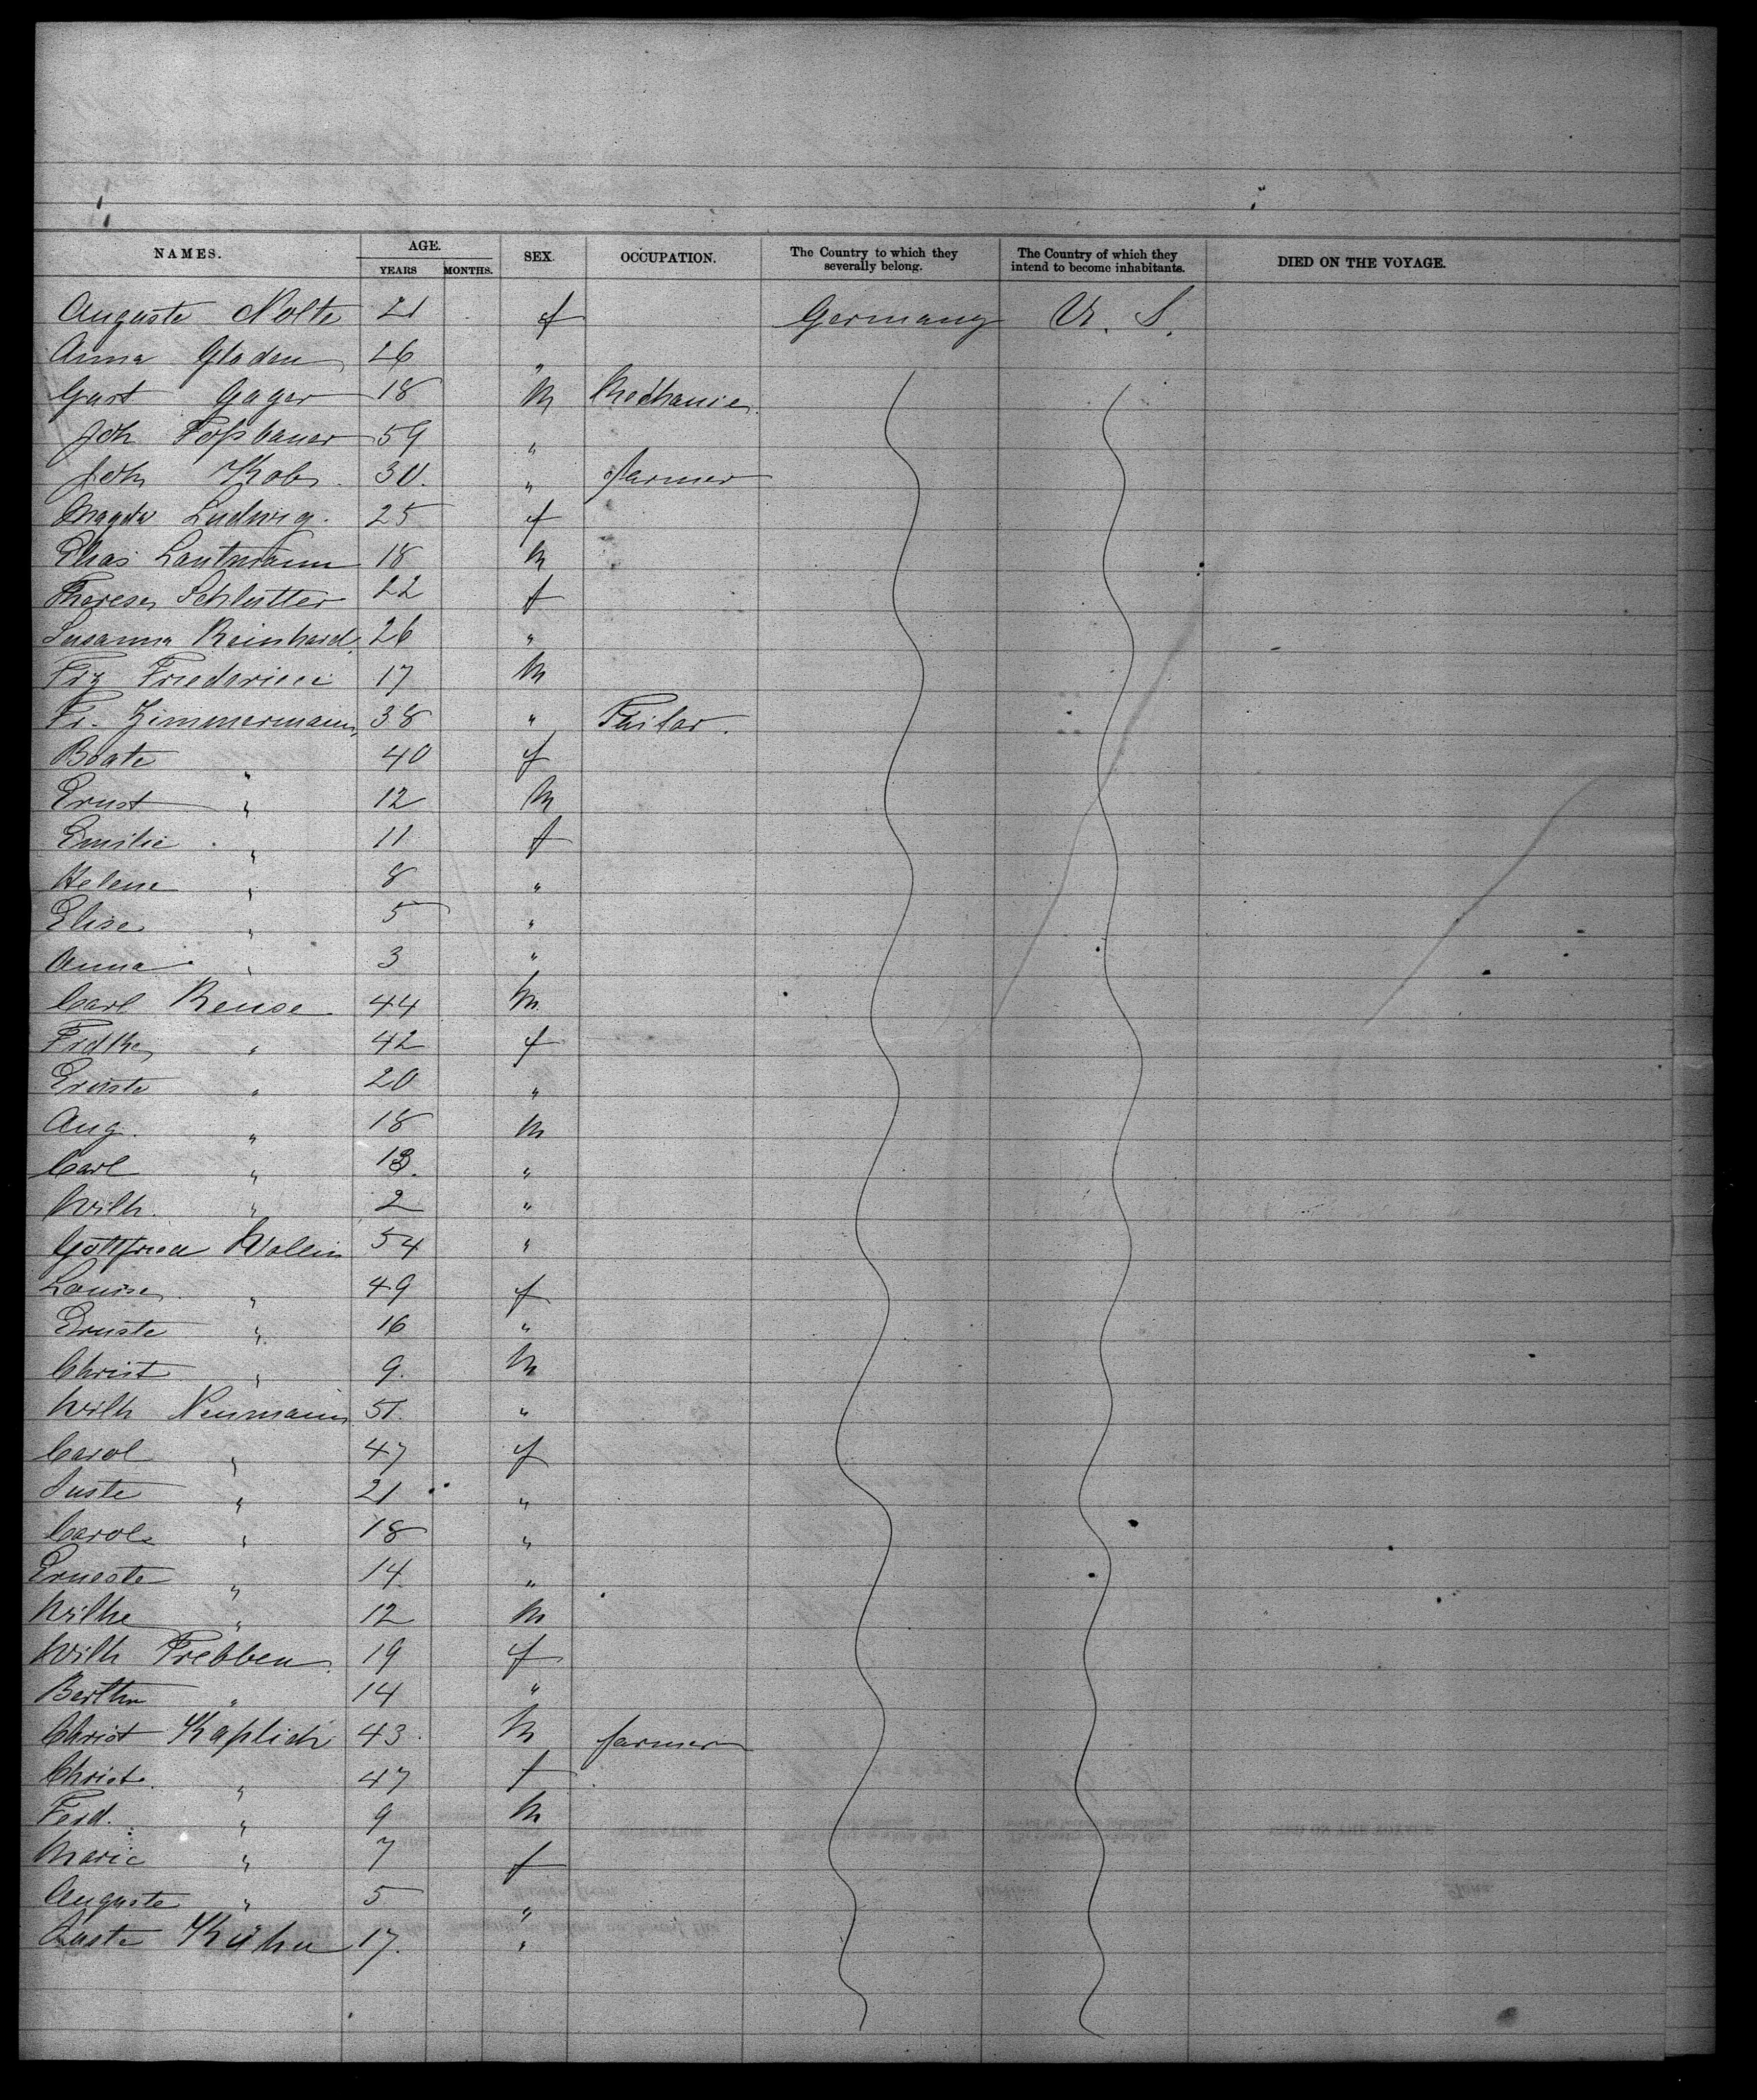 NAMES. AGE. SEX. OCCUPATION. The Country to which they severally belong. The Country of which they intend to become inhabitants. DIED ON THE VOYAGE.
YEARS MONTHS.
Auguste Nolte 21 f Germany U. S.
Anna Gladen 26 "
Gust Gager 18 M Mechanic
Joh Foßbauer 59 "
Joh Kob 30. " farmer
Magda Ludwig. 25 f
Elias Lautmann 18 M
Therese Schlutter 22 f
Susanna Reinhard 26 "
Frz Friederici 17 M
Fr. Zimmermann 38 " Tailor.
Beate " 40 f
Ernst " 12 M
Emilie " 11 f
Helene " 8 "
Elise " 5 "
Anna " 3 "
Carl Reuse 44 M
Fridke " 42 f
Ernste " 20 "
Aug. " 18 M
Carl " 13. "
Wilh. " 2 "
Gottfried Wollin 54 "
Louise " 49 f
Ernste " 16 "
Christ " 9. M
Wilh Neumann 51. "
Carol " 47 f
Juste " 21 "
Carole " 18 "
Erneste " 14. "
Wilhe " 12 M
Wilh Trebben 19 f
Bertha " 14 "
Christ Kaplich 43. M farmer
Christe. " 47 f
Ferd. " 9 M
Marie " 7 f
Auguste " 5 "
Kühn 17. "